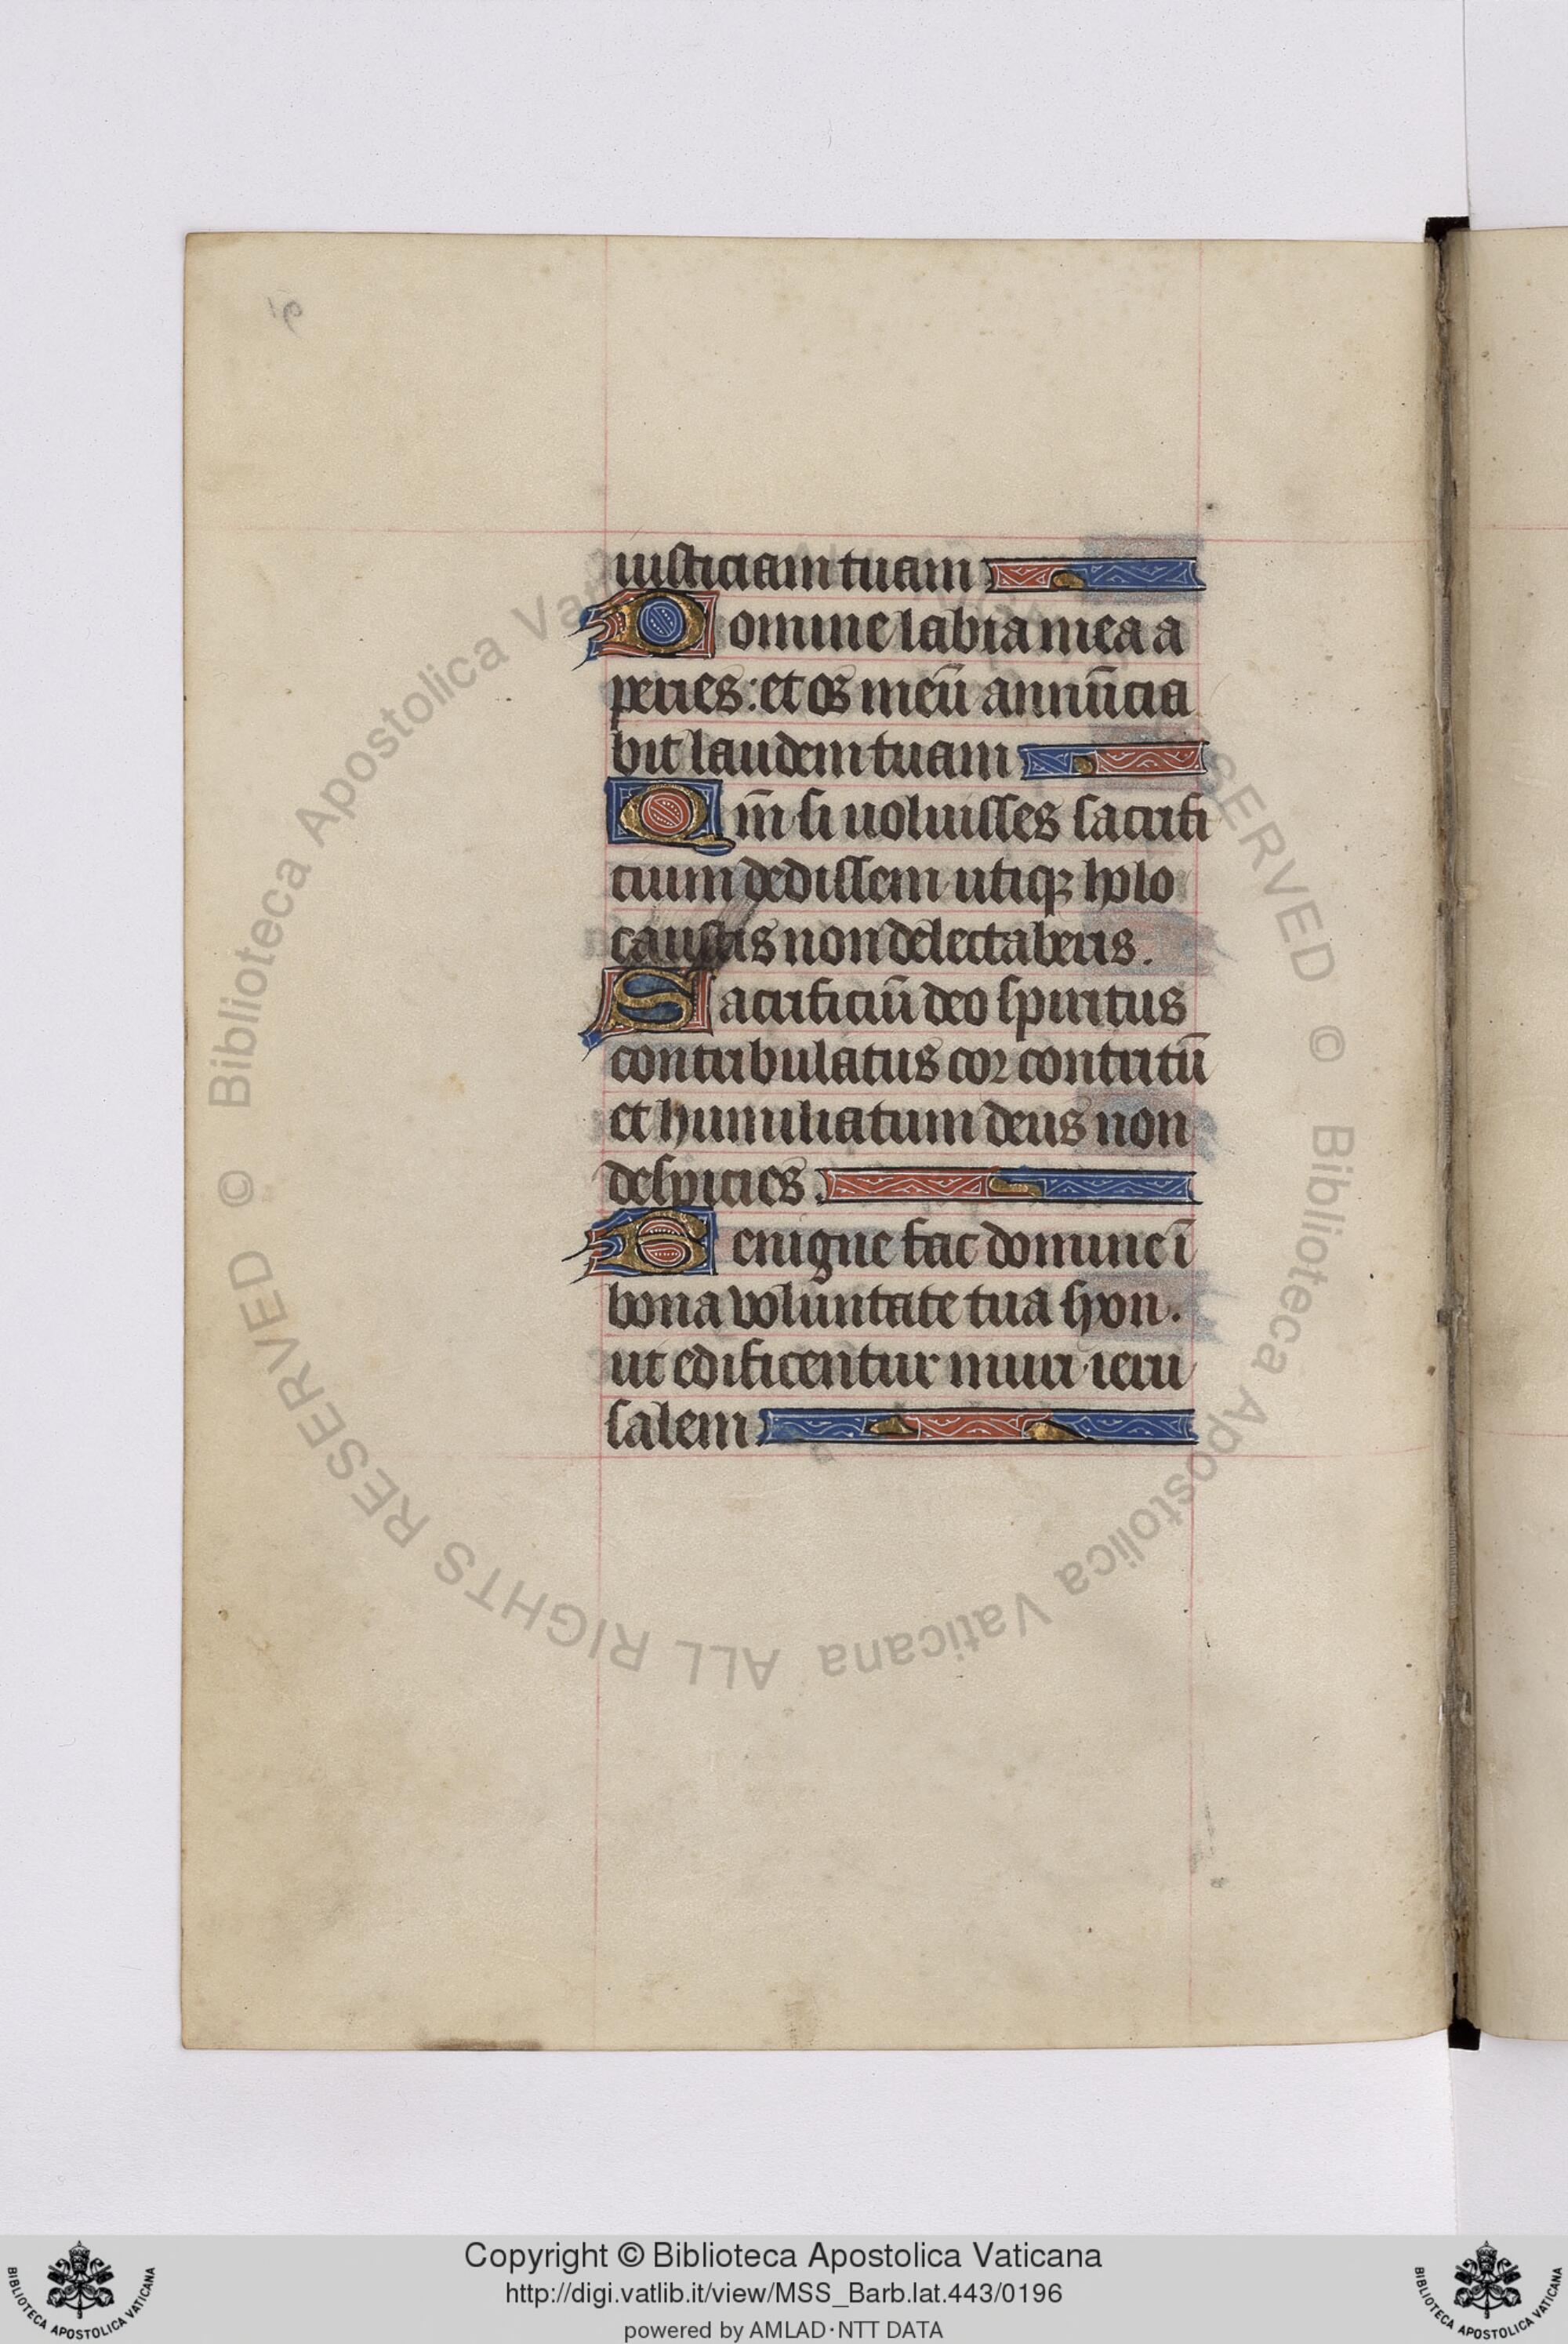 iusticiam tuam
Domine labia mea a
peries: et os meū annūcia
bit laudem tuam
Qm̄ si uoluisses sacrifi
cium dedissem utiqꝫ holo
caustis non delectaberis.
Sacrificiū deo spiritus
contribulatus cor contritū
et humiliatum deus non
despicies.
Benigne fac domine ī
bona voluntate tua syon.
ut edificentur muri ieru
salem
Biblioteca Apostolica Vaticana ALL RIGHTS RESERVED © Biblioteca Apostolica Vaticana ALL RIGHTS RESERVED ©
Copyright © Biblioteca Apostolica Vaticana
http://digi.vatlib.it/view/MSS_Barb.lat.443/0196
powered by AMLAD·NTT DATA
BIBLIOTECA APOSTOLICA VATICANA
BIBLIOTECA APOSTOLICA VATICANA